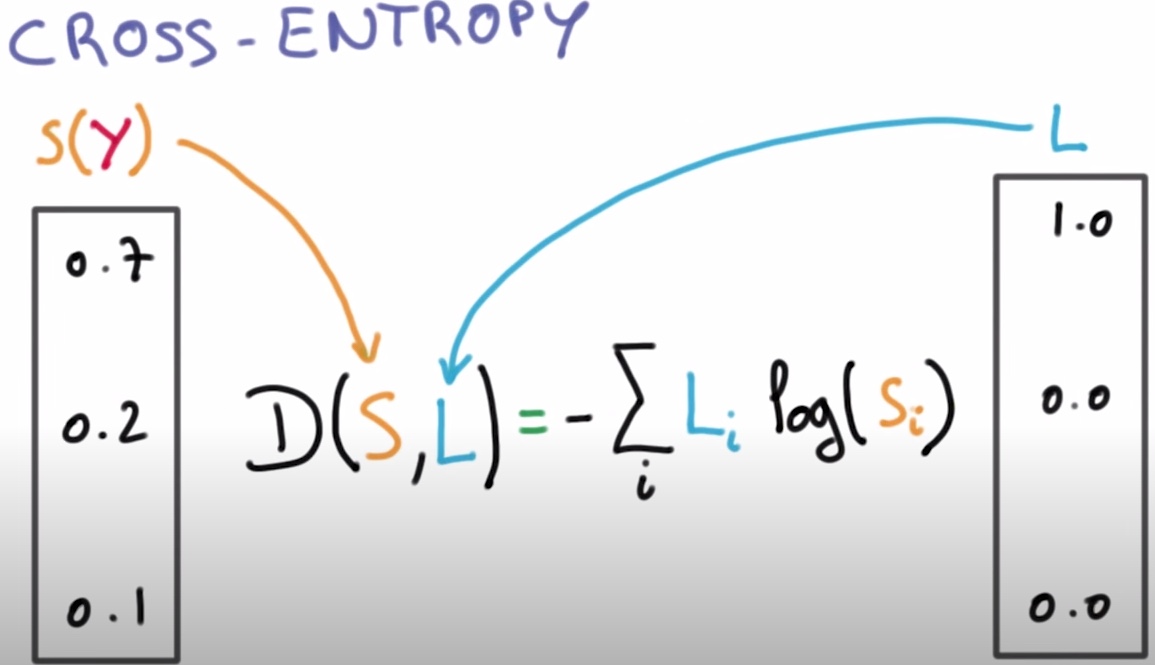 CROSS-ENTROPY
S(Y)
L
0.7
1.0
0.2
D(S,L) = -∑ᵢ Lᵢ log(Sᵢ)
0.0
0.1
0.0